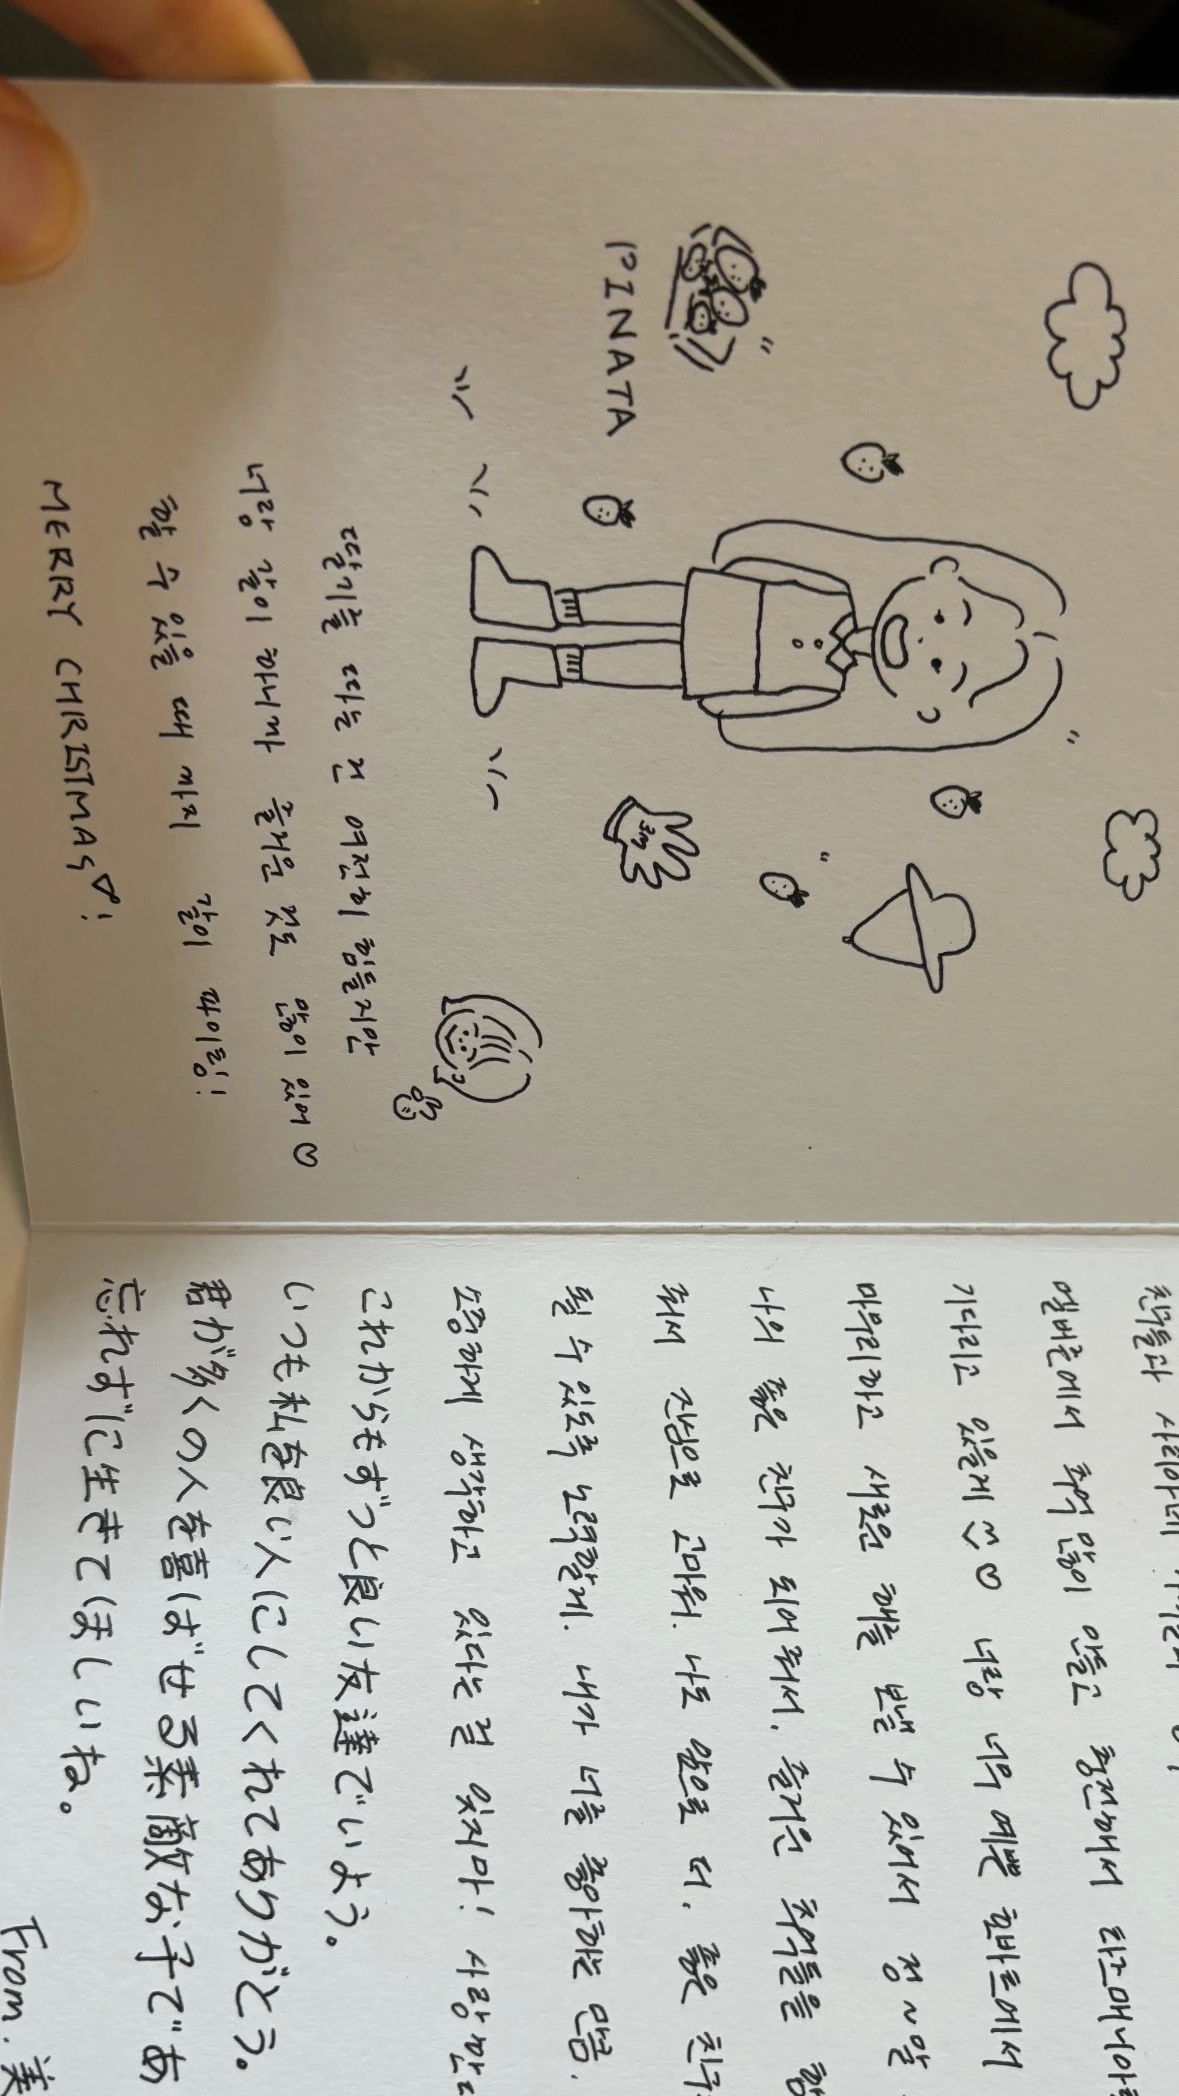 PINATA
3M
딸기를 따는 건 여전히 힘들지만
너랑 같이 하니까 즐거운 것도 많이 있어♡
할 수 있을 때 까지 같이 파이팅!
MERRY CHRISTMAS♡!
친구들과
멜버른에서 추억 많이 만들고 충전해서
기다리고 있을게 ♡ 너랑 너무 예쁜 휜바르에서
마무리하고 새로운 해를 보낼 수 있어서 정~말
나의 좋은 친구가 되어줘서, 즐거운 추억들을
줘서 진심으로 고마워. 나도 앞으로 더, 좋은
될 수 있도록 노력할게. 내가 너를 좋아하는 만큼
소중하게 생각하고 있다는 걸 잊지마!
これからもずっと良い友達でいよう。
いつも私を良い人にしてくれてありがとう。
君が多くの人を喜ばせる素敵な子であ
忘れずに生きてほしいね。
From. 美